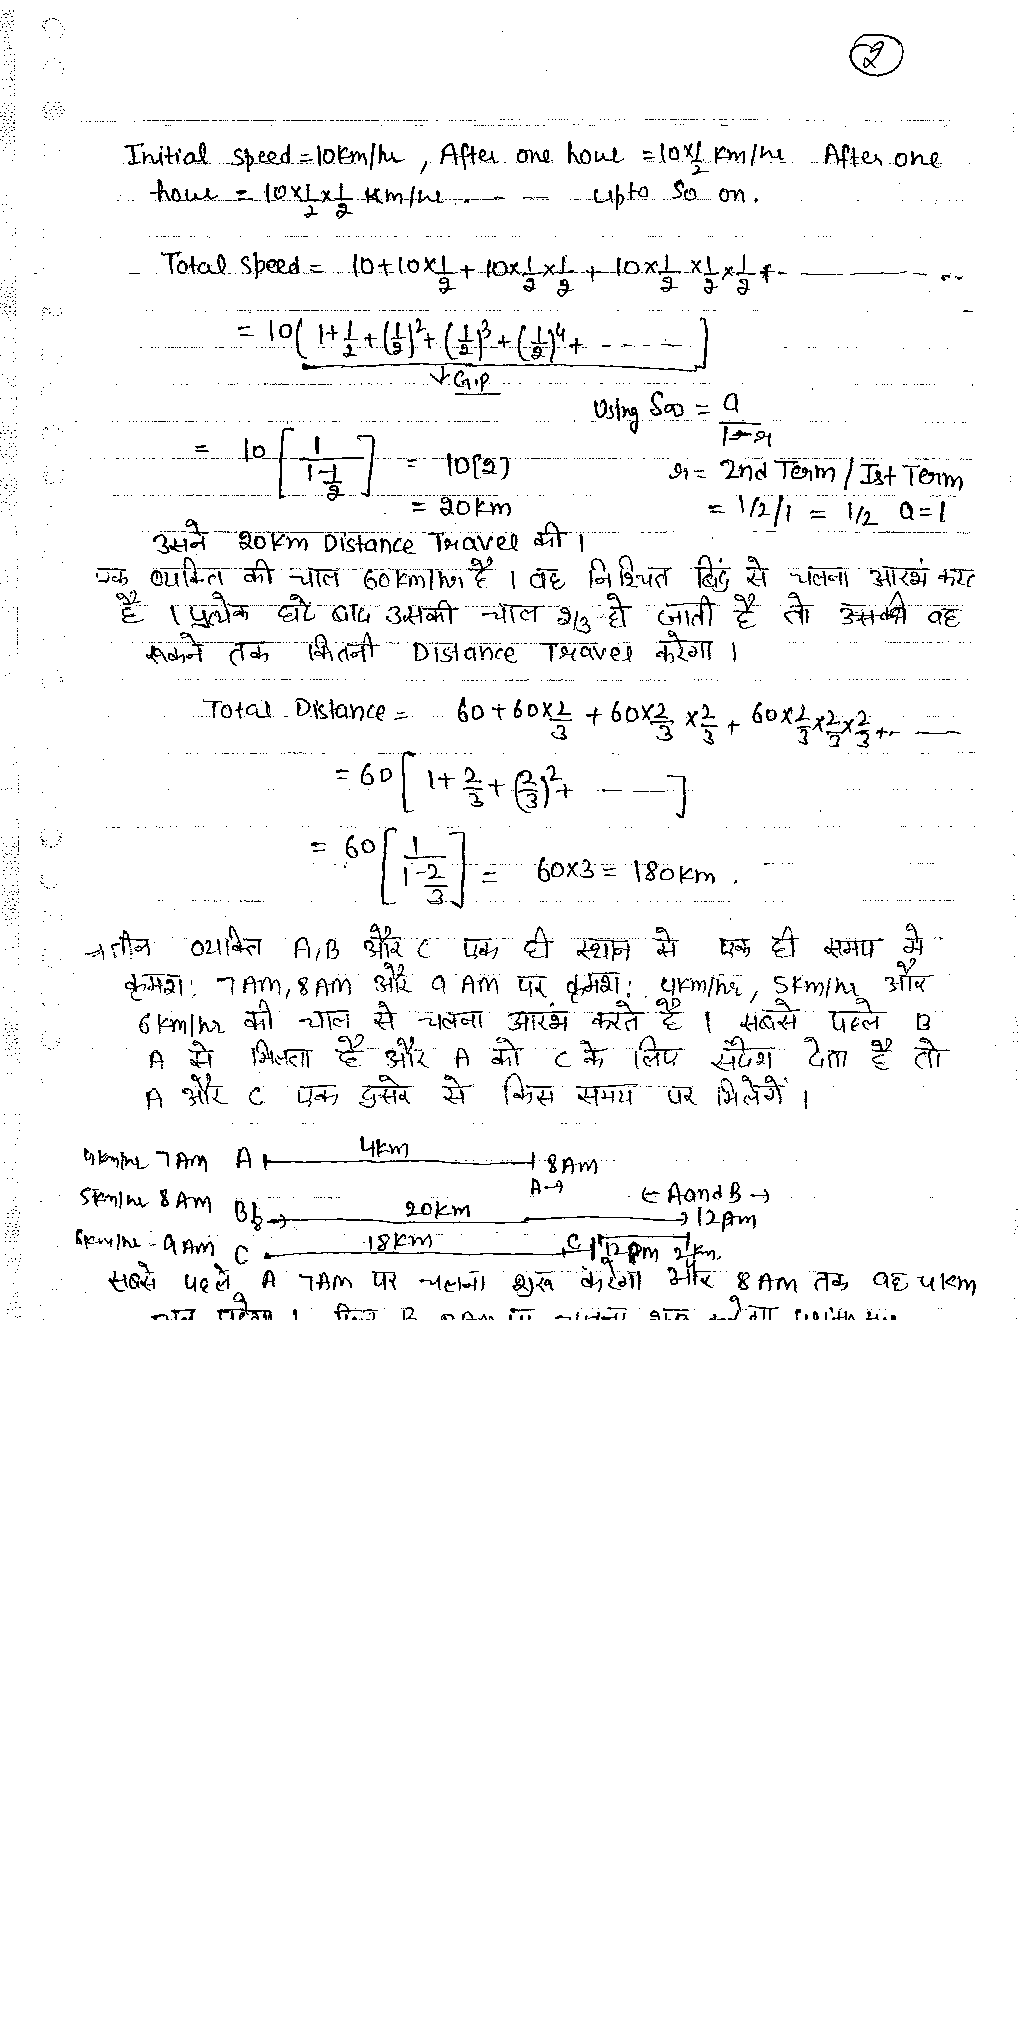 2
Initial speed = 10km/hr , After one hour = 10×1/2 km/hr After one
hour = 10×1/2×1/2 km/hr. - - - upto so on.
Total speed = 10+10×1/2 + 10×1/2×1/2 + 10×1/2×1/2×1/2 + - - - ..
= 10[ 1+1/2+(1/2)²+(1/2)³+(1/2)⁴+ - - - - - ]
↓ G.P
Using S∞ = a/1-r
= 10[1/1-1/2] = 10[2] r = 2nd Term / Ist Term
= 20km = 1/2/1 = 1/2 a=1
उसने 20km Distance Travel की ।
एक व्यक्ति की चाल 60km/hr है । वह निश्चित बिंदु से चलना आरंभ करता
है । प्रत्येक घंटे बाद उसकी चाल 2/3 हो जाती है तो वह
रूकने तक कितनी Distance Travel करेगा ।
Total Distance = 60+60×2/3 + 60×2/3×2/3 + 60×2/3×2/3×2/3+ - —
= 60[ 1+2/3+(2/3)²+ - - — ]
= 60[1/1-2/3] = 60×3 = 180km .
→ तीन व्यक्ति A,B और C एक ही स्थान से एक ही समय में
क्रमश: 7AM, 8AM और 9AM पर क्रमश: 4km/hr, 5km/hr और
6km/hr की चाल से चलना आरंभ करते है । सबसे पहले B
A से मिलता है और A को C के लिए संदेश देता है तो
A और C एक दुसरे से किस समय पर मिलेगें ।
4km/hr 7AM A 4km 8AM
A→ ← A and B →
5km/hr 8AM B 20km → 12pm
6km/hr - 9AM C 18km C 12pm 2km
सबसे पहले A 7AM पर चलना शुरू करेगा और 8AM तक वह 4km